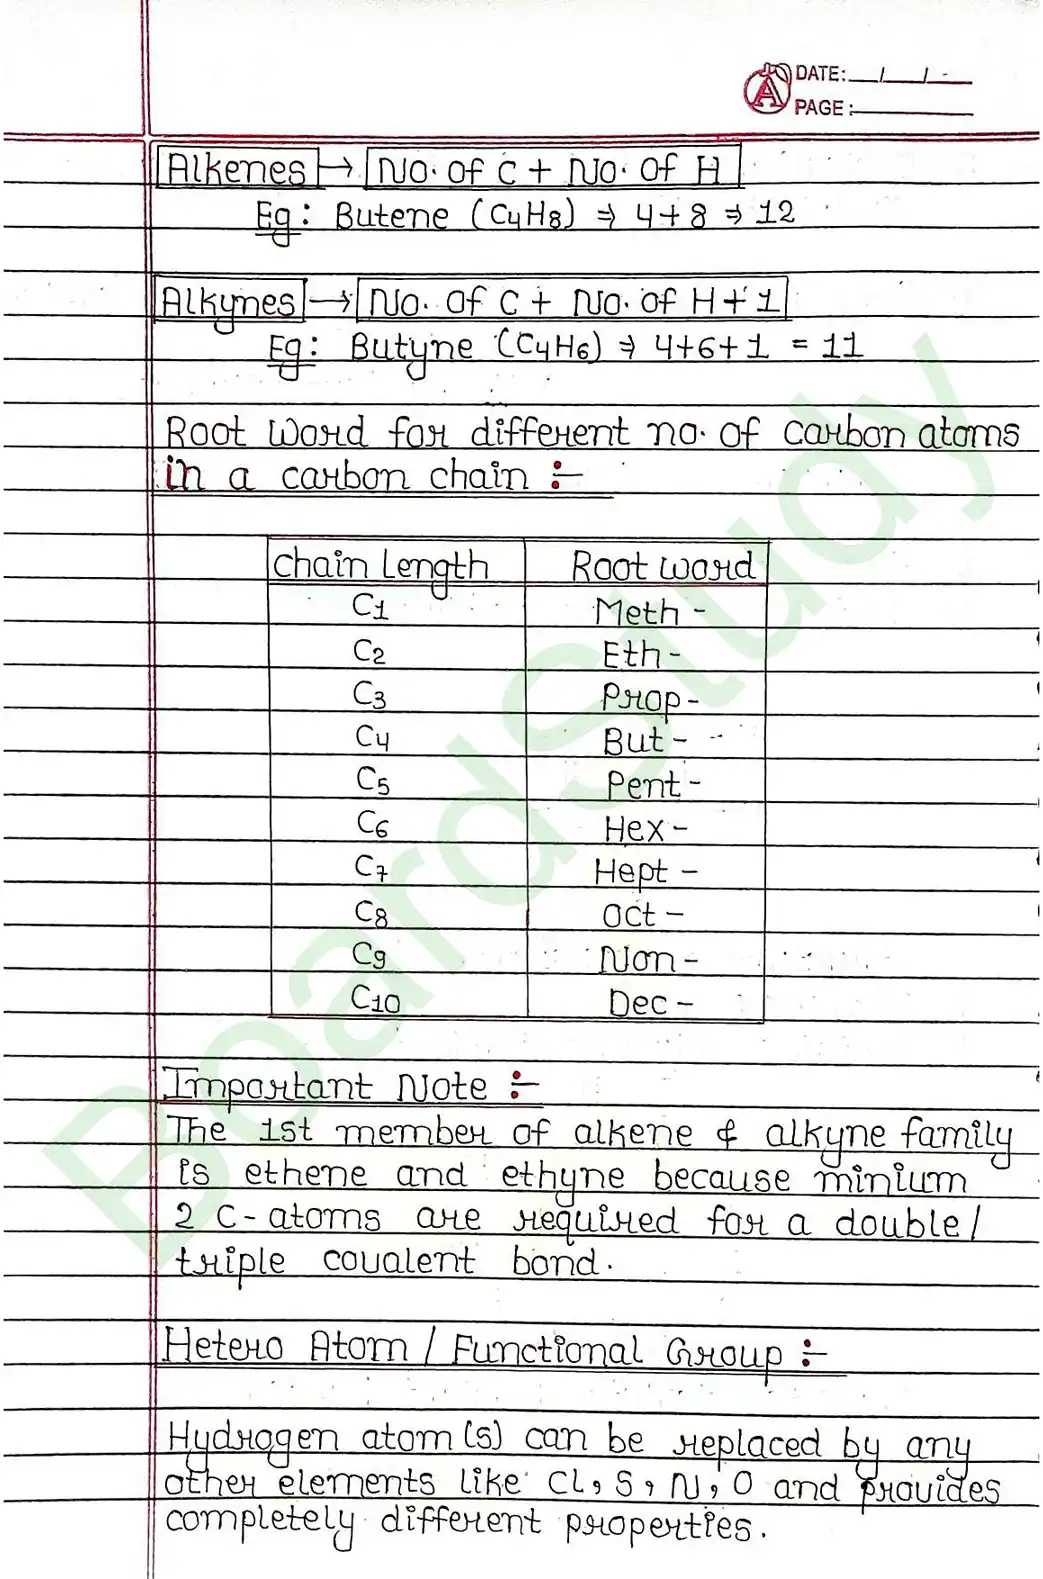 DATE: __/__/__
PAGE: ______
Alkenes → No. of C + No. of H
Eg: Butene (C4H8) ⇒ 4+8 ⇒ 12
Alkynes → No. of C + No. of H + 1
Eg: Butyne (C4H6) ⇒ 4+6+1 = 11
Root word for different no. of carbon atoms
in a carbon chain :-
chain Length Root word
C1 Meth -
C2 Eth -
C3 Prop -
C4 But -
C5 Pent -
C6 Hex -
C7 Hept -
C8 Oct -
C9 Non -
C10 Dec -
Important Note :-
The 1st member of alkene & alkyne family
is ethene and ethyne because minium
2 C-atoms are required for a double/
triple covalent bond.
Hetero Atom / Functional Group :-
Hydrogen atom(s) can be replaced by any
other elements like Cl, S, N, O and provides
completely different properties.
BoardStudy